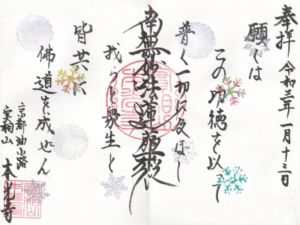 奉拝 令和三年一月十三日
願くは
この功徳を以って
普く一切に及ぼし
南無妙法蓮華経
我らと衆生と
皆共に
佛道を成ぜん
京都油小路
実相山 本光寺